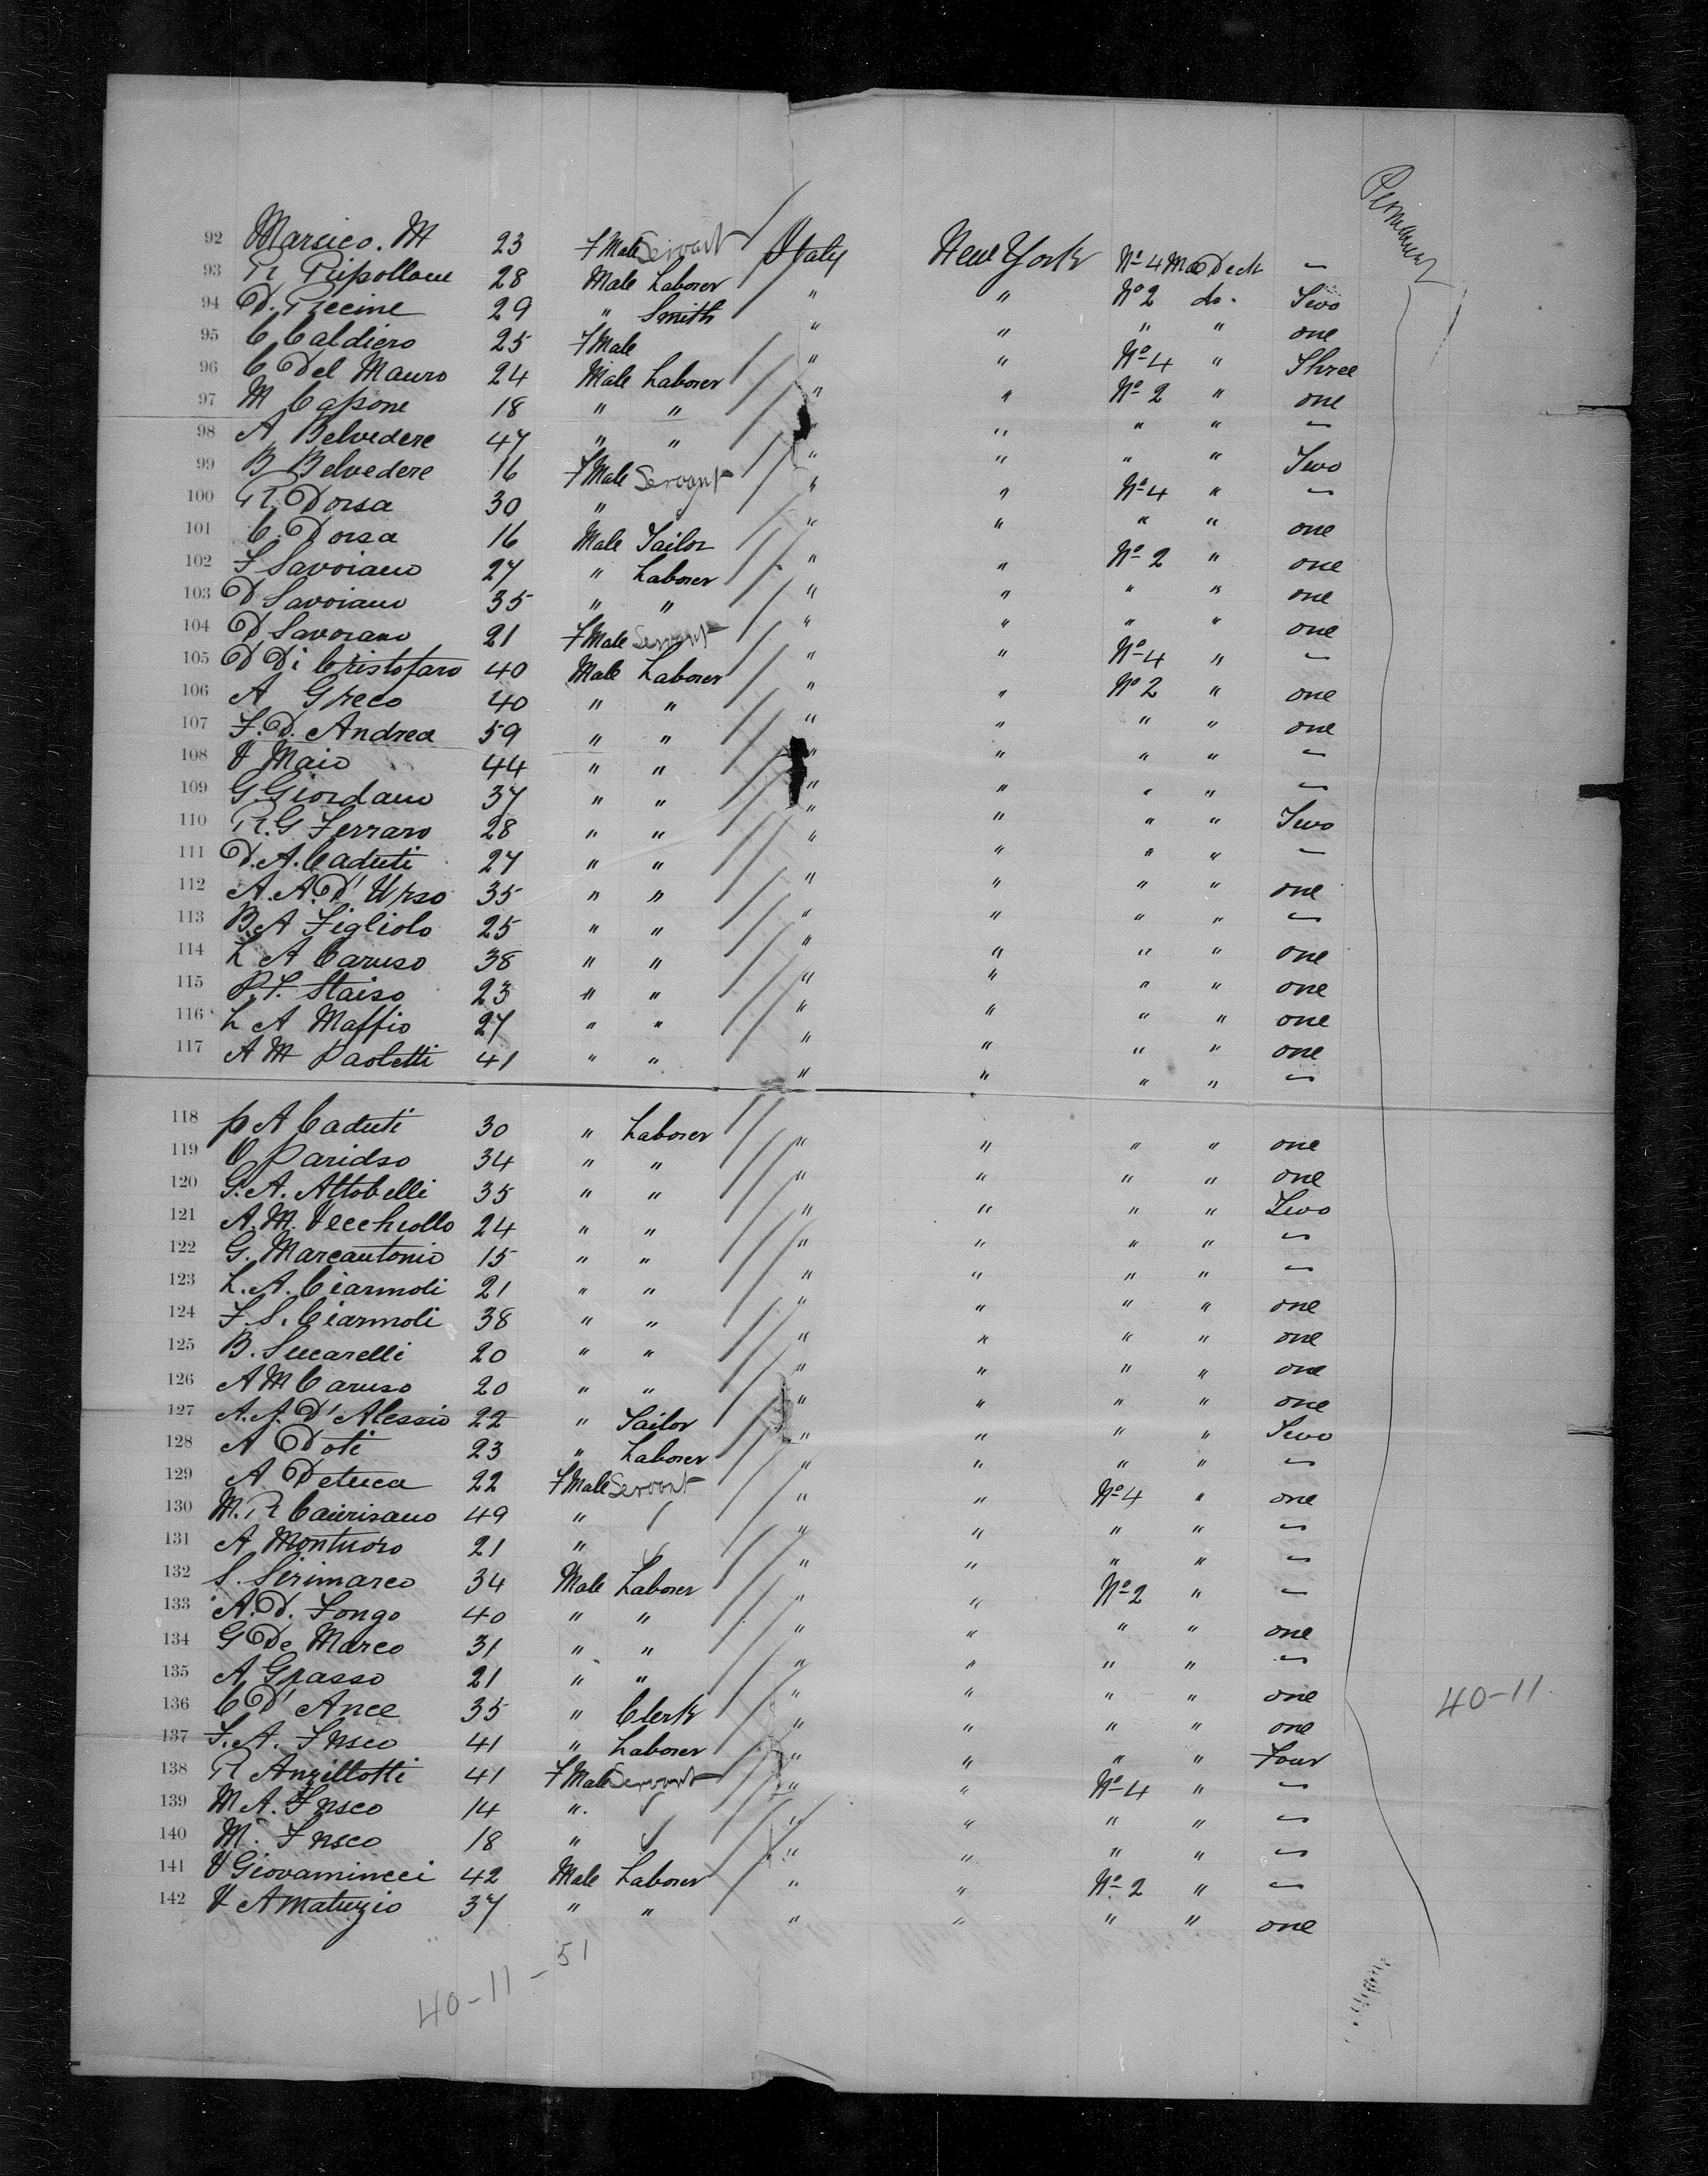 Permanent
92 Marsico. M 23 FMale Servant Italy New York No 4 Ma Deck "
93 R Ripollone 28 Male Laborer " " No 2 do. Two
94 D. Piccine 29 " Smith " " " " one
95 C Caldiero 25 FMale " " No 4 " Three
96 C Del Mauro 24 Male Laborer " " No 2 " one
97 M Capone 18 " " " " " " "
98 A Belvedere 47 " " " " " " Two
99 B Belvedere 16 FMale Servant " " No 4 " "
100 R. Dorsa 30 " " " " " one
101 C. Dorsa 16 Male Tailor " " No 2 " one
102 F Savoiano 27 " Laborer " " " " one
103 D Savoiano 35 " " " " " " one
104 D Savoiano 21 FMale Servant " " No 4 " "
105 D Di Cristofaro 40 Male Laborer " " No 2 " one
106 A Greco 40 " " " " " " one
107 F. D. Andrea 59 " " " " " " "
108 V Maio 44 " " " " " " "
109 G. Giordano 37 " " " " " " Two
110 R. G Ferraro 28 " " " " " " "
111 D. A. Caduti 27 " " " " " " one
112 A. A. D' Urso 35 " " " " " " "
113 B. A Figliolo 25 " " " " " " one
114 L A Caruso 38 " " " " " " one
115 P. F. Staiso 23 " " " " " " one
116 L A Maffio 27 " " " " " " one
117 A M Paoletti 41 " " " " " " "
118 P A Caduti 30 " Laborer " " " " one
119 V Paridso 34 " " " " " " one
120 G. A. Altobelli 35 " " " " " " Two
121 A. M. Vecchiollo 24 " " " " " " "
122 G. Marcantonio 15 " " " " " " "
123 L. A. Ciarmoli 21 " " " " " " one
124 F. S. Ciarmoli 38 " " " " " " one
125 B. Succarelli 20 " " " " " " one
126 A M Caruso 20 " " " " " " one
127 A. A. D' Alessio 22 " Tailor " " " " Two
128 A Doti 23 " Laborer " " " " "
129 A Deluca 22 FMale Servant " " No 4 " one
130 M. R Cairisano 49 " " " " " "
131 A Montuoro 21 " " " " " "
132 S. Sirimarco 34 Male Laborer " " No 2 " "
133 A. D. Longo 40 " " " " " " one
134 G De Marco 31 " " " " " " "
135 A Grasso 21 " " " " " " one
136 C D' Ance 35 " Clerk " " " " one
137 F. A. Fusco 41 " Laborer " " " " Four
138 R Anzillotti 41 FMale Servant " " No 4 " "
139 M A. Fusco 14 " " " " " "
140 M. Fusco 18 " " " " " "
141 V Giovamincci 42 Male Laborer " " No 2 " "
142 V Amatuzio 37 " " " " " " one
40-11
40-11-51